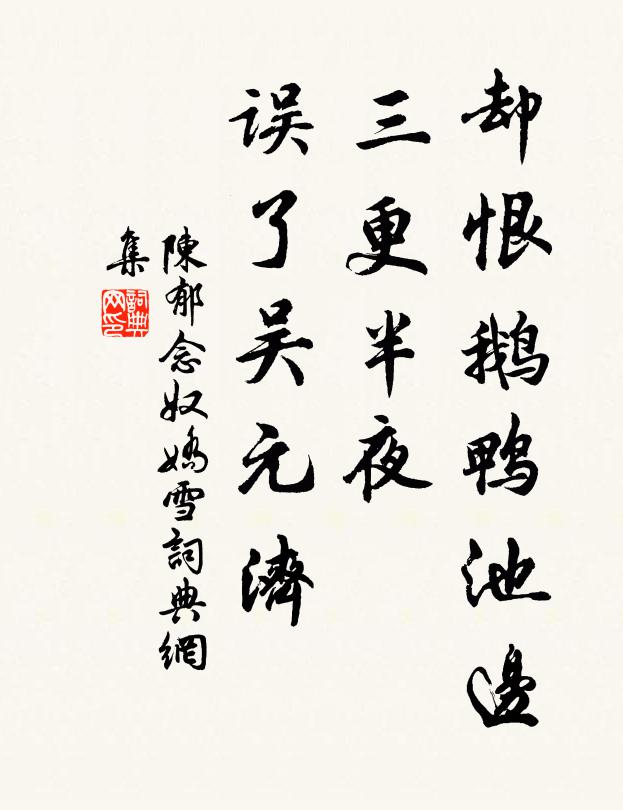 却恨鹅鸭池邊
三更半夜
误了吴元濟
陳郁念奴嬌雪詞典網
集
詞典
网印